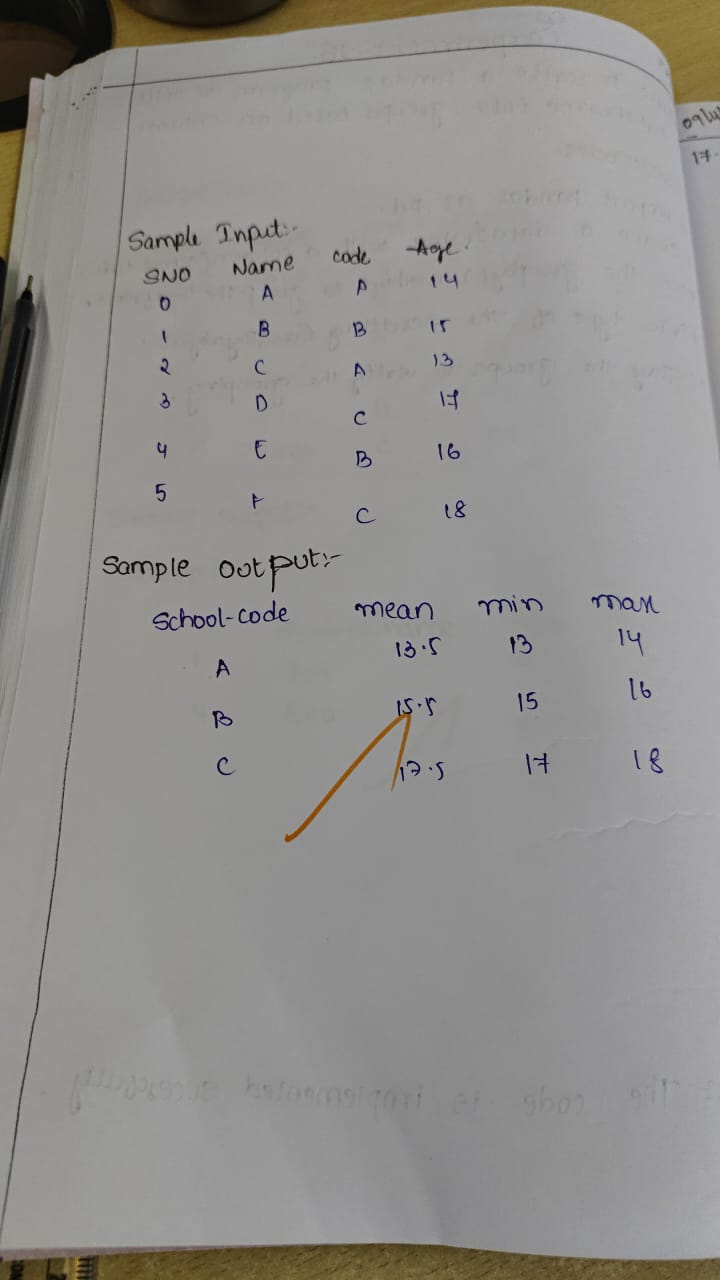 Sample Input:-
SNO Name code Age
0 A A 14
1 B B 15
2 C A 13
3 D C 17
4 E B 16
5 F C 18
Sample output:-
School-code mean min max
A 13.5 13 14
B 15.5 15 16
C 17.5 17 18
09/4
17.